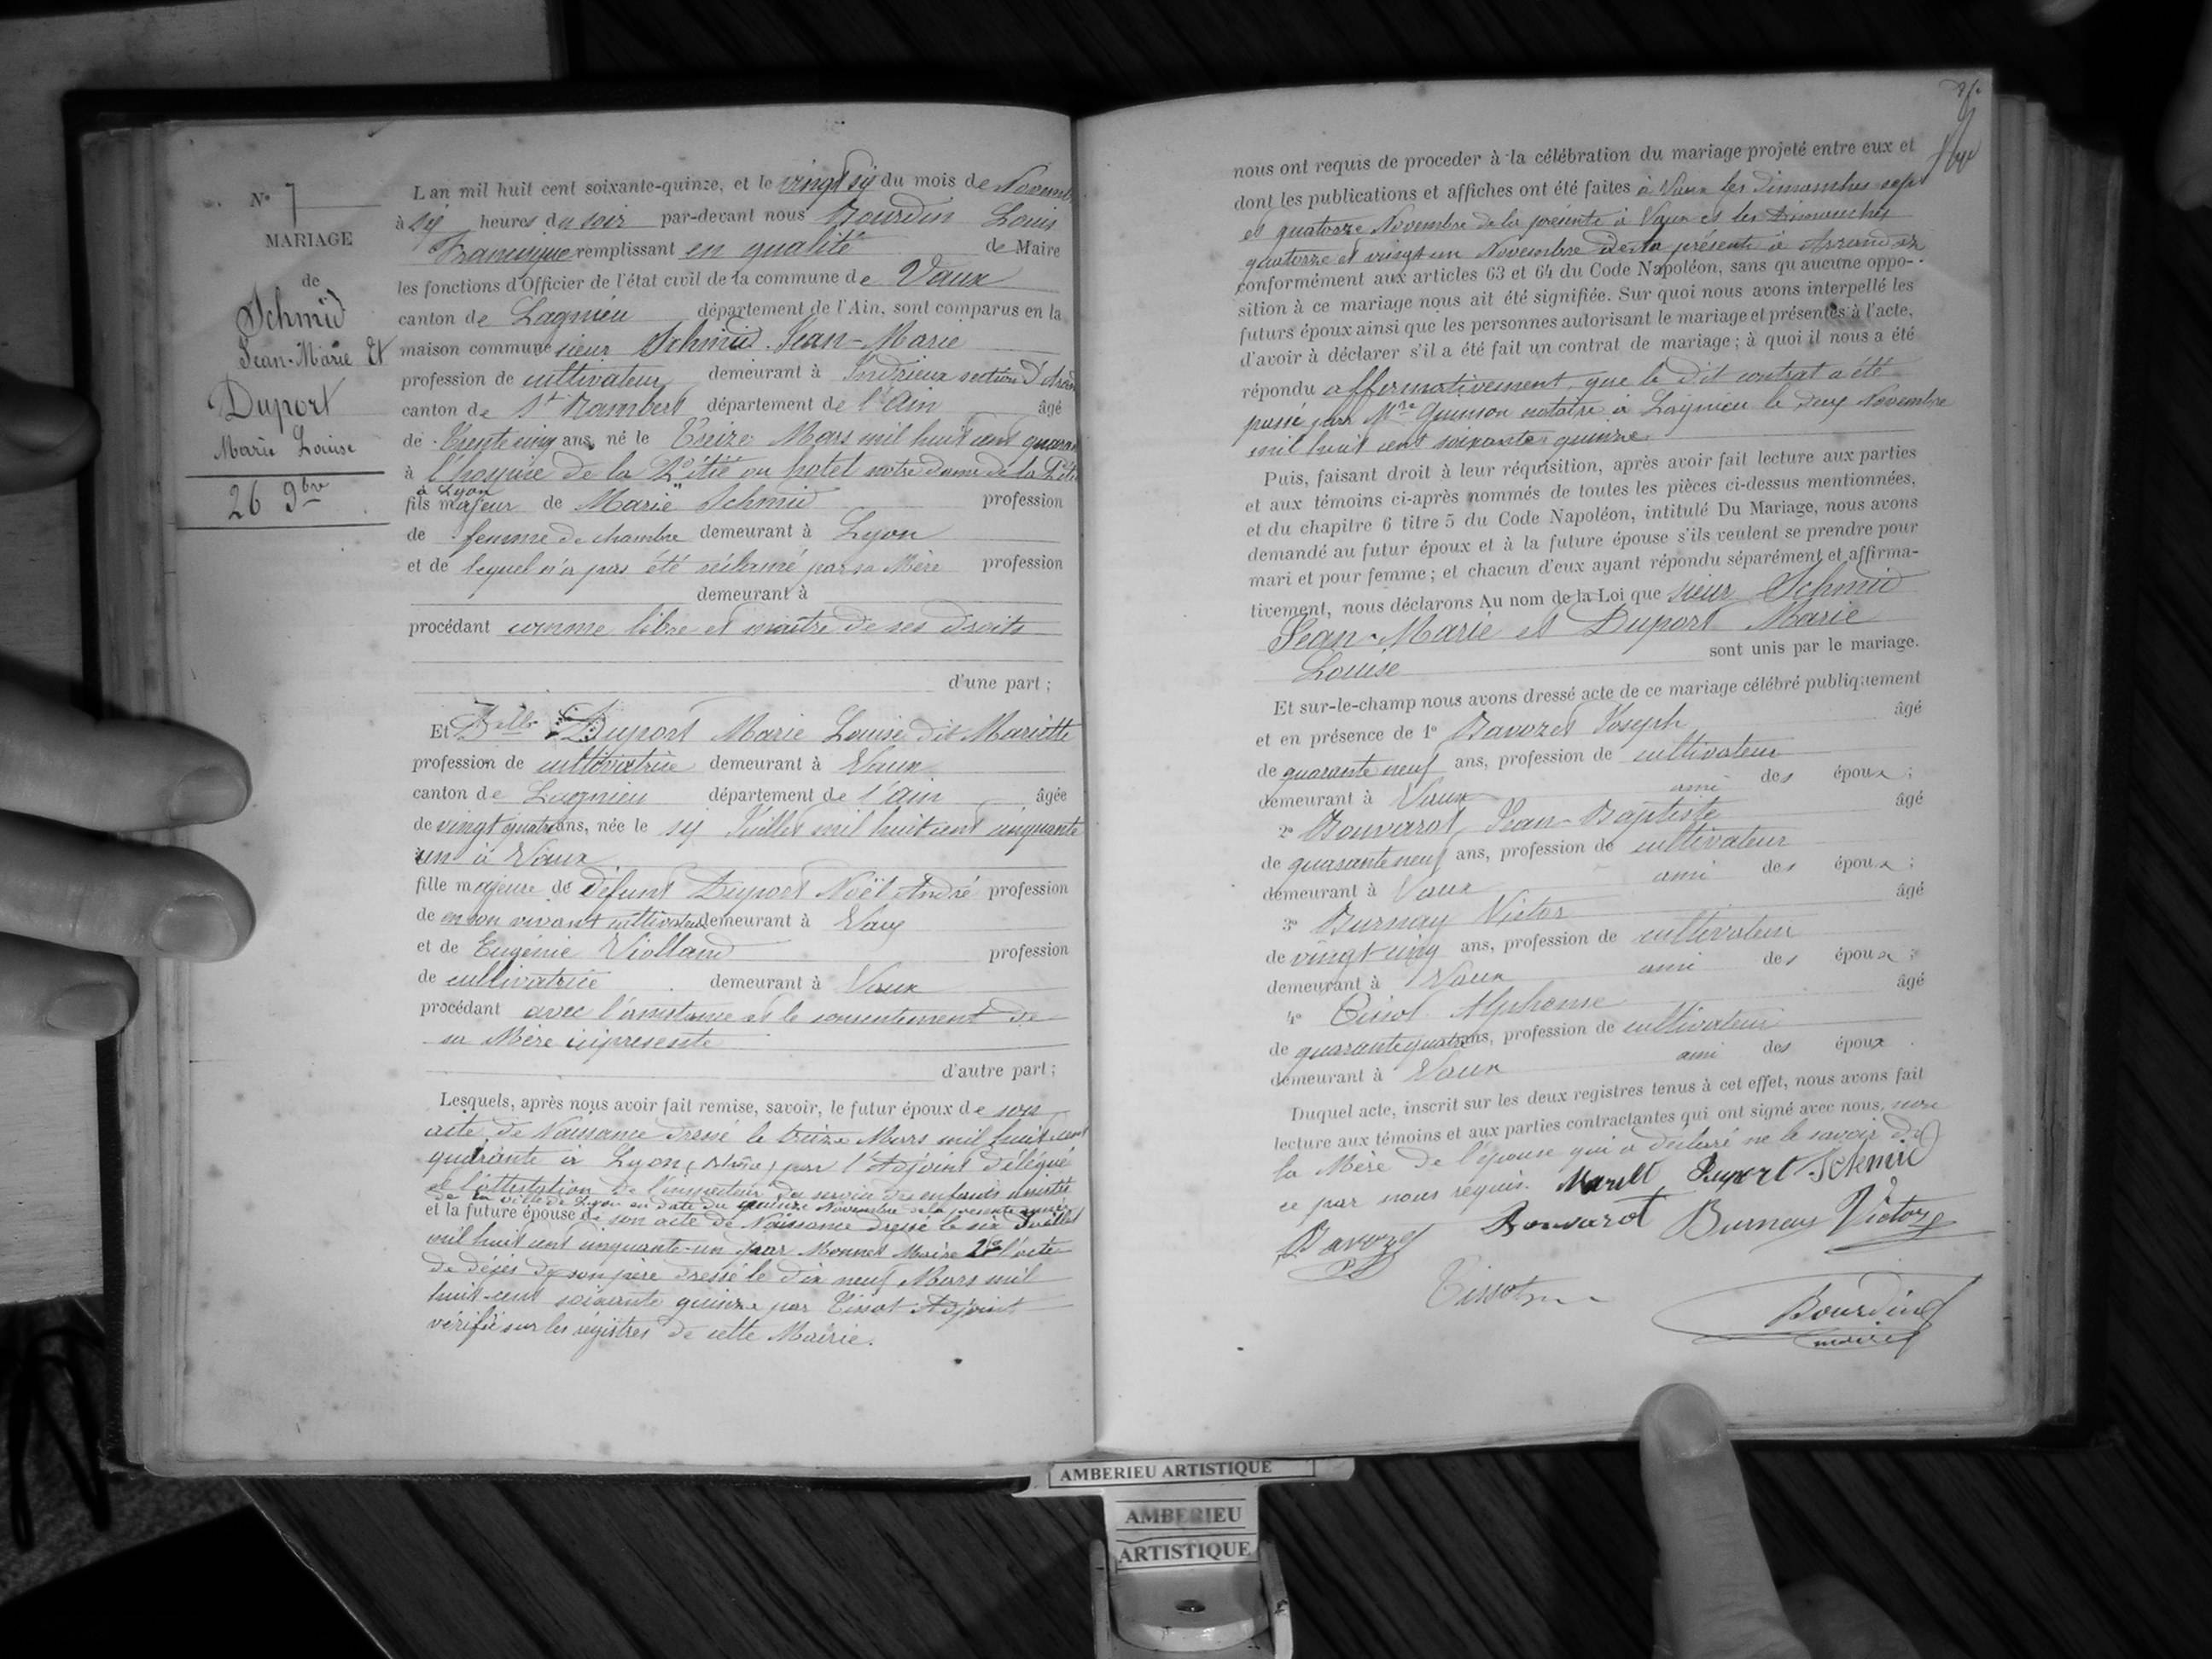 N° 7
MARIAGE
de
Schmid
Jean-Marie Et
Duport
Marie Louise
26 9bre
L'an mil huit cent soixante-quinze, et le vingt six du mois de Novemb
à six heures du soir par-devant nous Bourdin Louis
Francisque remplissant en qualité de Maire
les fonctions d'Officier de l'état civil de la commune de Vaux
canton de Lagnieu département de l'Ain, sont comparus en la
maison commune sieur Schmid Jean-Marie
profession de cultivateur demeurant à Indrieux section d'Aran
canton de St Rambert département de l'Ain âgé
de Trente cinq ans, né le Treize Mars mil huit cent quaran
à l'hospice de la Pitié ou hotel notre dame de la Pitié
à Lyon
fils majeur de Marie Schmid profession
de femme de chambre demeurant à Lyon
et de lequel n'a pas été réclamé par sa Mère profession
demeurant à
procédant comme libre et maître de ses droits
d'une part ;
Et Dlle Duport Marie Louise dit Mariette
profession de cultivatrice demeurant à Vaux
canton de Lagnieu département de l'Ain âgée
de vingt quatre ans, née le six Juillet mil huit cent cinquante
un à Vaux
fille majeure de défunt Duport Noël André profession
de en son vivant cultivateur demeurant à Vaux
et de Eugénie Violland profession
de cultivatrice demeurant à Vaux
procédant avec l'assistance et le consentement de
sa Mère ici présente
d'autre part ;
Lesquels, après nous avoir fait remise, savoir, le futur époux de son
acte de Naissance dressé le treize Mars mil huit cent
quarante à Lyon (Rhône) par l'Adjoint délégué
et l'attestation de l'inspecteur du service des enfants assistés
de la ville de Lyon en date du quinze Novembre de la présente année
et la future épouse de son acte de Naissance dressé le six Juillet
mil huit cent cinquante-un par Monnet Maire 2° l'acte
de décès de son père dressé le dix neuf Mars mil
huit-cent soixante quinze par Tissot Adjoint
vérifié sur les registres de cette Mairie.
nous ont requis de proceder à la célébration du mariage projeté entre eux et
dont les publications et affiches ont été faites à Vaux les dimanches sept
et quatorze Novembre de la présente à Vaux et les Dimanches
quatorze et vingt un Novembre de la présente à Arrandaz
conformément aux articles 63 et 64 du Code Napoléon, sans qu'aucune oppo-
sition à ce mariage nous ait été signifiée. Sur quoi nous avons interpellé les
futurs époux ainsi que les personnes autorisant le mariage et présentes à l'acte,
d'avoir à déclarer s'il a été fait un contrat de mariage ; à quoi il nous a été
répondu affirmativement que le dit contrat a été
passé par Mtre Quinson notaire à Lagnieu le deux Novembre
mil huit cent soixante quinze
Puis, faisant droit à leur réquisition, après avoir fait lecture aux parties
et aux témoins ci-après nommés de toutes les pièces ci-dessus mentionnées,
et du chapitre 6 titre 5 du Code Napoléon, intitulé Du Mariage, nous avons
demandé au futur époux et à la future épouse s'ils veulent se prendre pour
mari et pour femme ; et chacun d'eux ayant répondu séparément et affirma-
tivement, nous déclarons Au nom de la Loi que sieur Schmid
Jean-Marie et Duport Marie
Louise sont unis par le mariage.
Et sur-le-champ nous avons dressé acte de ce mariage célébré publiquement
et en présence de 1° Bavozet Joseph âgé
de quarante neuf ans, profession de cultivateur
demeurant à Vaux ami des époux ;
2° Bouvarot Jean-Baptiste âgé
de quarante neuf ans, profession de cultivateur
demeurant à Vaux ami des époux ;
3° Burnay Victor âgé
de vingt cinq ans, profession de cultivateur
demeurant à Vaux ami des époux ;
4° Tissot Alphonse âgé
de quarante quatre ans, profession de cultivateur
demeurant à Vaux ami des époux .
Duquel acte, inscrit sur les deux registres tenus à cet effet, nous avons fait
lecture aux témoins et aux parties contractantes qui ont signé avec nous, non
la Mère de l'épouse qui a déclaré ne le savoir de
ce par nous requis. Duport Schmid
Bavozet Bouvarot Burnay Victor
Tissot Bourdin
maire
AMBERIEU ARTISTIQUE
AMBERIEU
ARTISTIQUE